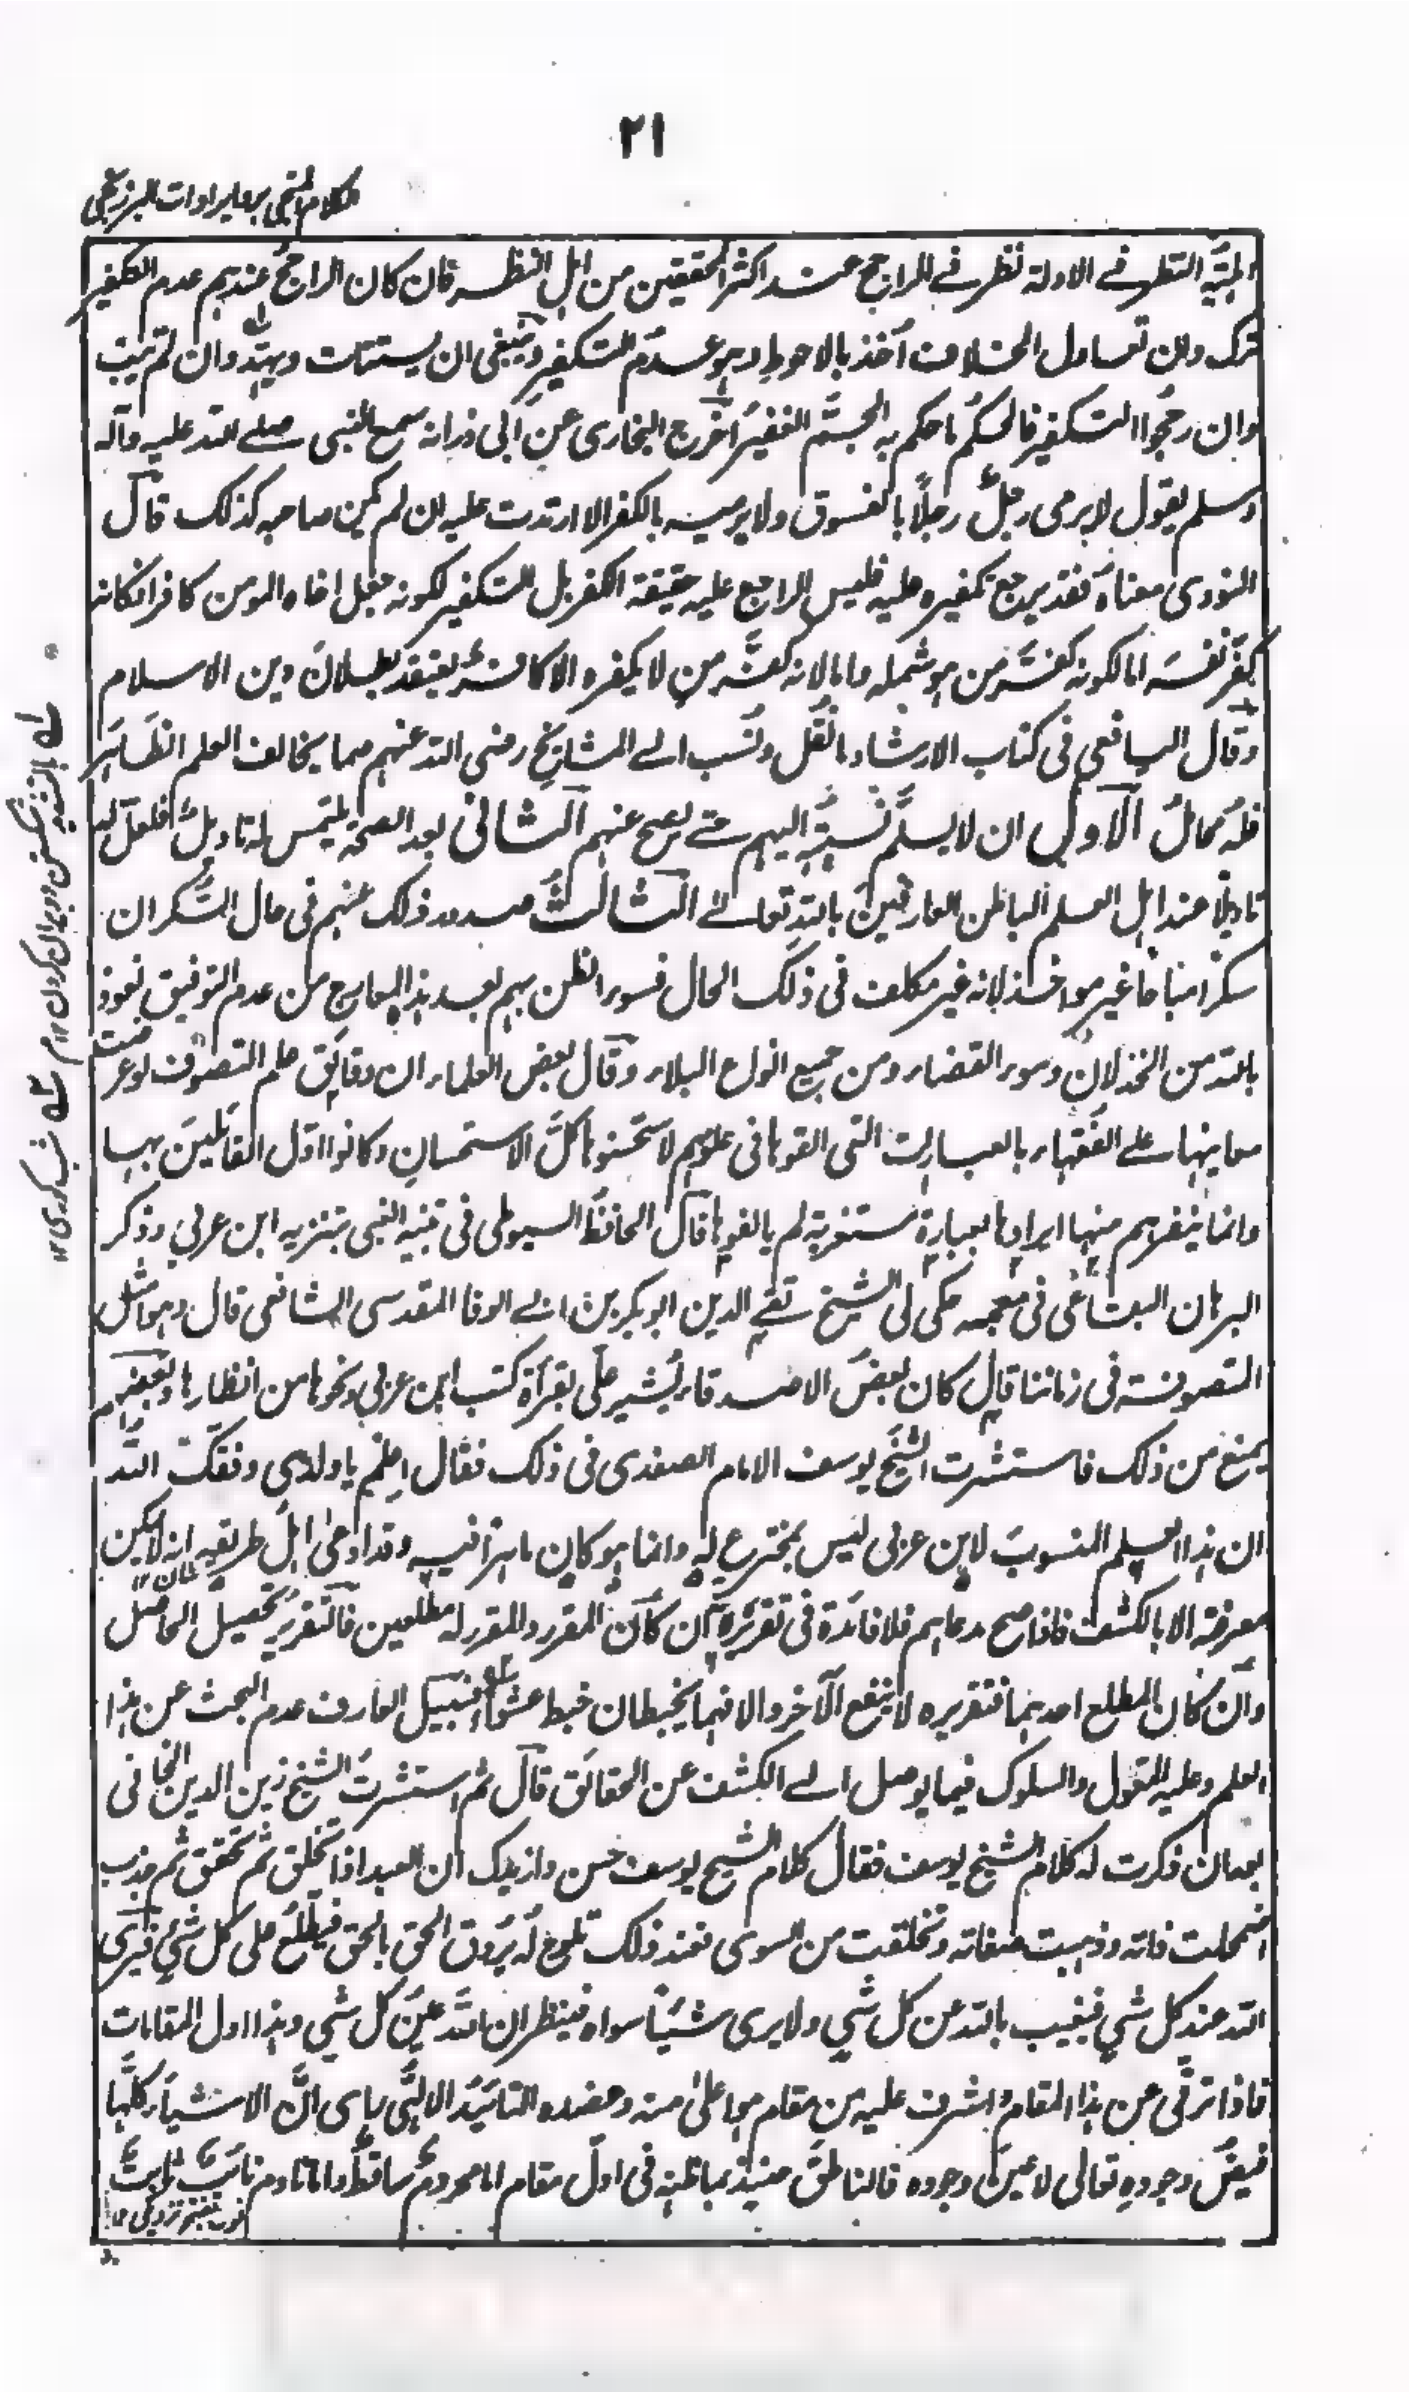 ٢١
الكلام المنجي برد ايرادات البرزنجي
النظر في الادلة نظر في الراجح عند اكثر المحققين من اهل النظر فان كان الراجح عندهم عدم التكفير
ترك وان تعادل الخلاف اخذ بالاحوط وهو عدم التكفير وينبغي ان يستتاب وان لم يتب
وان رجحوا التكفير فالحكم ما حكم به الجم الغفير اخرج البخاري عن ابي ذر انه سمع النبي صلى الله عليه وآله
وسلم يقول لا يرمي رجلٌ رجلًا بالفسوق ولا يرميه بالكفر الا ارتدت عليه ان لم يكن صاحبه كذلك قال
النووي معناه فقد يرجع تكفيره عليه فليس الراجع عليه حقيقة الكفر بل التكفير لكونه جعل اخاه المؤمن كافرا فكانه
كفّر نفسه اما لكونه كفّر من هو مثله واما لانه كفّر من لا يكفره الا كافرٌ يعتقد بطلان دين الاسلام
وقال اليافعي في كتاب الارشاد ما نقل ونسب الى المشايخ رضي الله عنهم مما يخالف العلم الظاهر
فله محامل الاول ان لا يسلّم نسبةٌ اليهم حتى يصح عنهم الثاني بعد الصحة يلتمس له تاويلٌ فلعل له
تاويلًا عند اهل العلم الباطن العارفين بالله تعالى الثالث صدور ذلك عنهم في حال السكر ان
سكرًا مباحًا غير مواخذ لانه غير مكلف في ذلك الحال فسوء الظن بهم بعد هذا المخارج من عدم التوفيق نعوذ
بالله من الخذلان وسوء القضاء ومن جميع انواع البلاء وقال بعض العلماء ان دقايق علم التصوف لو عرضت
معانيها على الفقهاء بالعبارات التي القوها في علومهم لاستحسنوها كل الاستحسان وكانوا اول القائلين بها
وانما ينفرهم منها ايرادها بعبارة مستغربة لم يالفوها قال الحافظ السيوطي في تنبيه الغبي بتنزيه ابن عربي وذكر
البرهان البقاعي في معجمه حكى لي الشيخ تقي الدين ابو بكر بن ابي الوفا المقدسي الشافعي قال وهو امثل
المتصوفة في زماننا قال كان بعض الاصدقاء يشير علي بقرأة كتب ابن عربي ونحوها من انظارها وبعضهم
يمنع من ذلك فاستشرت الشيخ يوسف الامام الصفدي في ذلك فقال اعلم يا ولدي وفقك الله
ان هذا العلم المنسوب لابن عربي ليس بمخترع له وانما هو كان ماهرًا فيه وقد ادعى اهل طريقه انه لا يمكن
معرفته الا بالكشف فاذا صح مدعاهم فلا فائدة في تقريره ان كان المقرر والمقرر له مطلعين فالتقرير تحصيل الحاصل
وان كان المطلع احدهما فتقريره لا ينفع الآخر والا فهما يخبطان خبط عشواء فسبيل العارف عدم البحث عن هذا
العلم وعليه والسلوك فيما يوصل الى الكشف عن الحقائق قال ثم استشرت الشيخ زين الدين الخافي
بعد ان ذكرت له كلام الشيخ يوسف فقال كلام الشيخ يوسف حسن وازيدك ان العبد اذا تخلق ثم تحقق ثم جذب
اضمحلت ذاته وذهبت صفاته وتخلصت من السوى فعند ذلك تلوح له بروق الحق بالحق فيطلع على كل شيٍ فيرى
الله عند كل شيٍ فيغيب بالله عن كل شيٍ ولا يرى شيئًا سواه فينظر ان الله عين كل شيٍ وهذا اول المقامات
فاذا ترقى عن هذا المقام واشرف عليه من مقام هو اعلى منه وعضده التائيد الالهي راى ان الاشياء كلها
فيض وجوده تعالى لا عين وجوده فالناطق حينئذ بما ظنه في اول مقام اما محروم ساقط واما نادم تائب